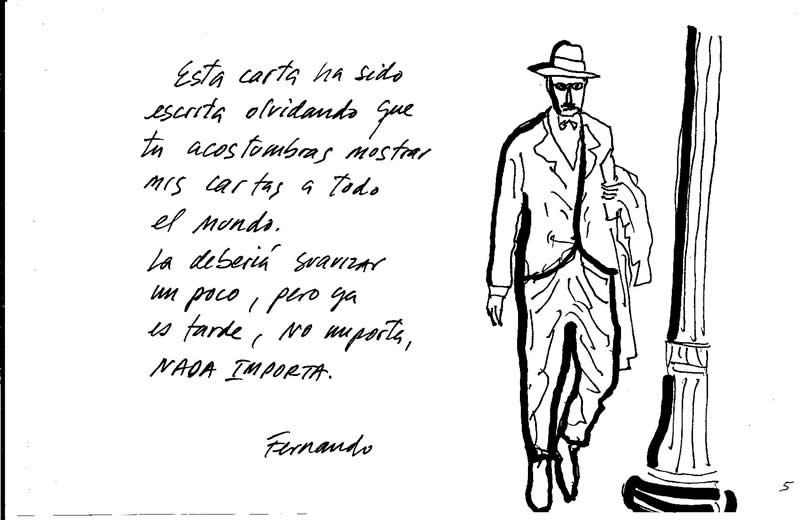 Esta carta ha sido
escrita olvidando que
tu acostumbras mostrar
mis cartas a todo
el mundo.
La debería suavizar
un poco, pero ya
es tarde, no importa,
NADA IMPORTA.
Fernando
5